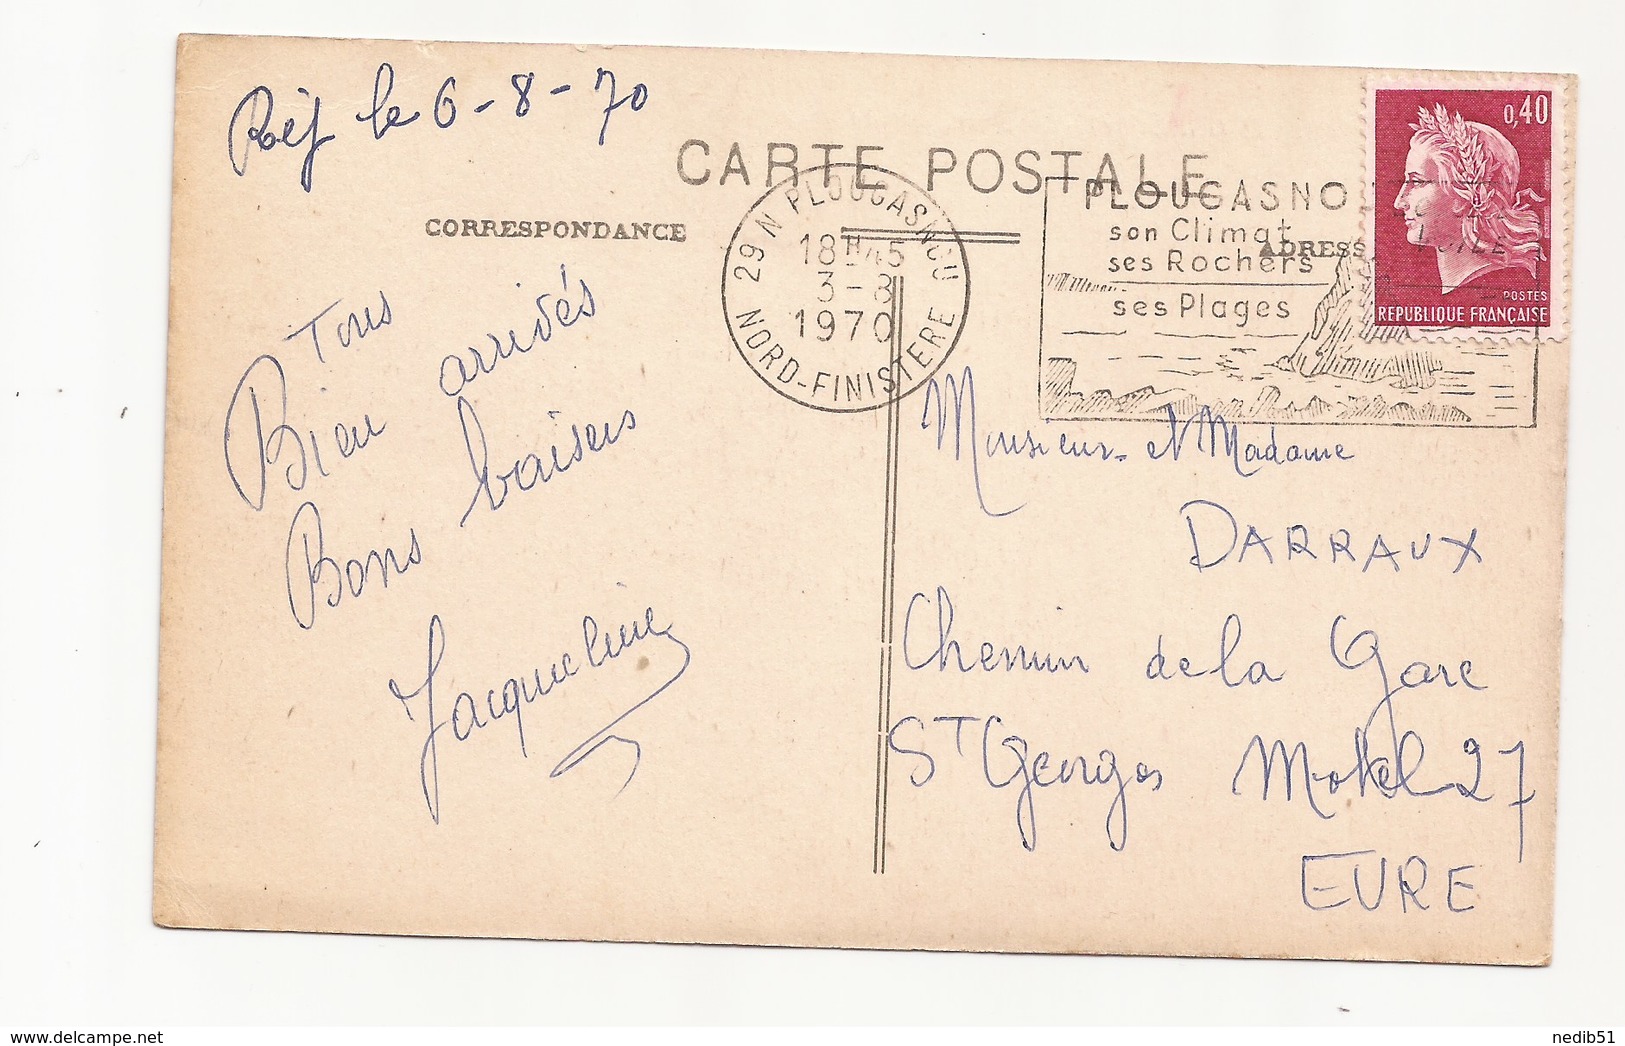 Réf le 6-8-70
CARTE POSTALE
CORRESPONDANCE
ADRESS
29 N PLOUGASNOU
18H45
3-8
1970
NORD-FINISTERE
PLOUGASNO
son Climat
ses Rochers
ses Plages
0,40
POSTES
REPUBLIQUE FRANÇAISE
Tous
Bien arrivés
Bons baisers
Jacqueline
Monsieur et Madame
DARRAUX
Chemin de la Gare
ST Georges Motel 27
EURE
www.delcampe.net
nedib51